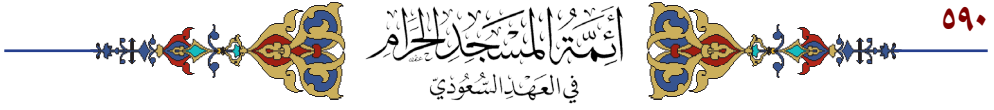 ٥٩٠
أَئِمَّةُ المَسْجِدِ الحَرَامِ
فِي العَهْدِ السُّعُودِيِّ